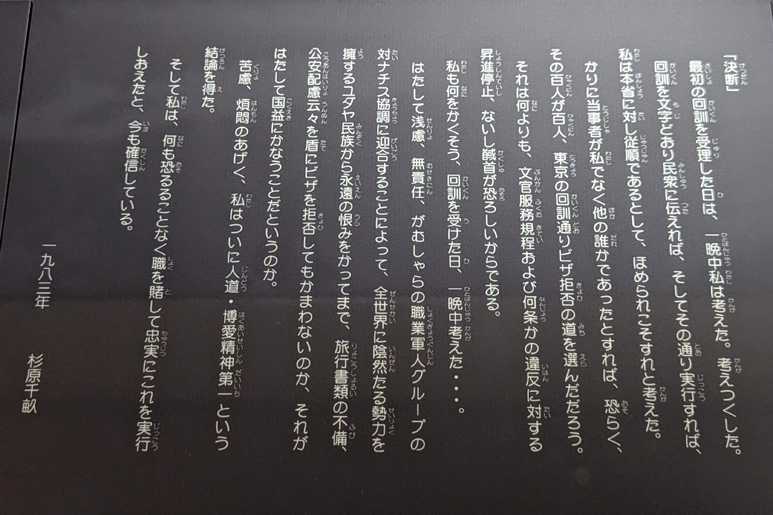 「決断」
最初の回訓を受理した日は、一晩中私は考えた。考えつくした。
回訓を文字どおり民衆に伝えれば、そしてその通り実行すれば、
私は本省に対し従順であるとして、ほめられこそすれと考えた。
かりに当事者が私でなく他の誰かであったとすれば、恐らく、
その百人が百人、東京の回訓通りビザ拒否の道を選んだだろう。
それは何よりも、文官服務規程および何条かの違反に対する
昇進停止、ないし馘首が恐ろしいからである。
私も何をかくそう、回訓を受けた日、一晩中考えた・・・・。
はたして浅慮、無責任、がむしゃらの職業軍人グループの
対ナチス協調に迎合することによって、全世界に陰然たる勢力を
擁するユダヤ民族から永遠の恨みをかってまで、旅行書類の不備、
公安配慮云々を盾にビザを拒否してもかまわないのか、それが
はたして国益にかなうことだというのか。
苦慮、煩悶のあげく、私はついに人道・博愛精神第一という
結論を得た。
そして私は、何も恐るることなく職を賭して忠実にこれを実行
しおえたと、今も確信している。
一九八三年 杉原千畝